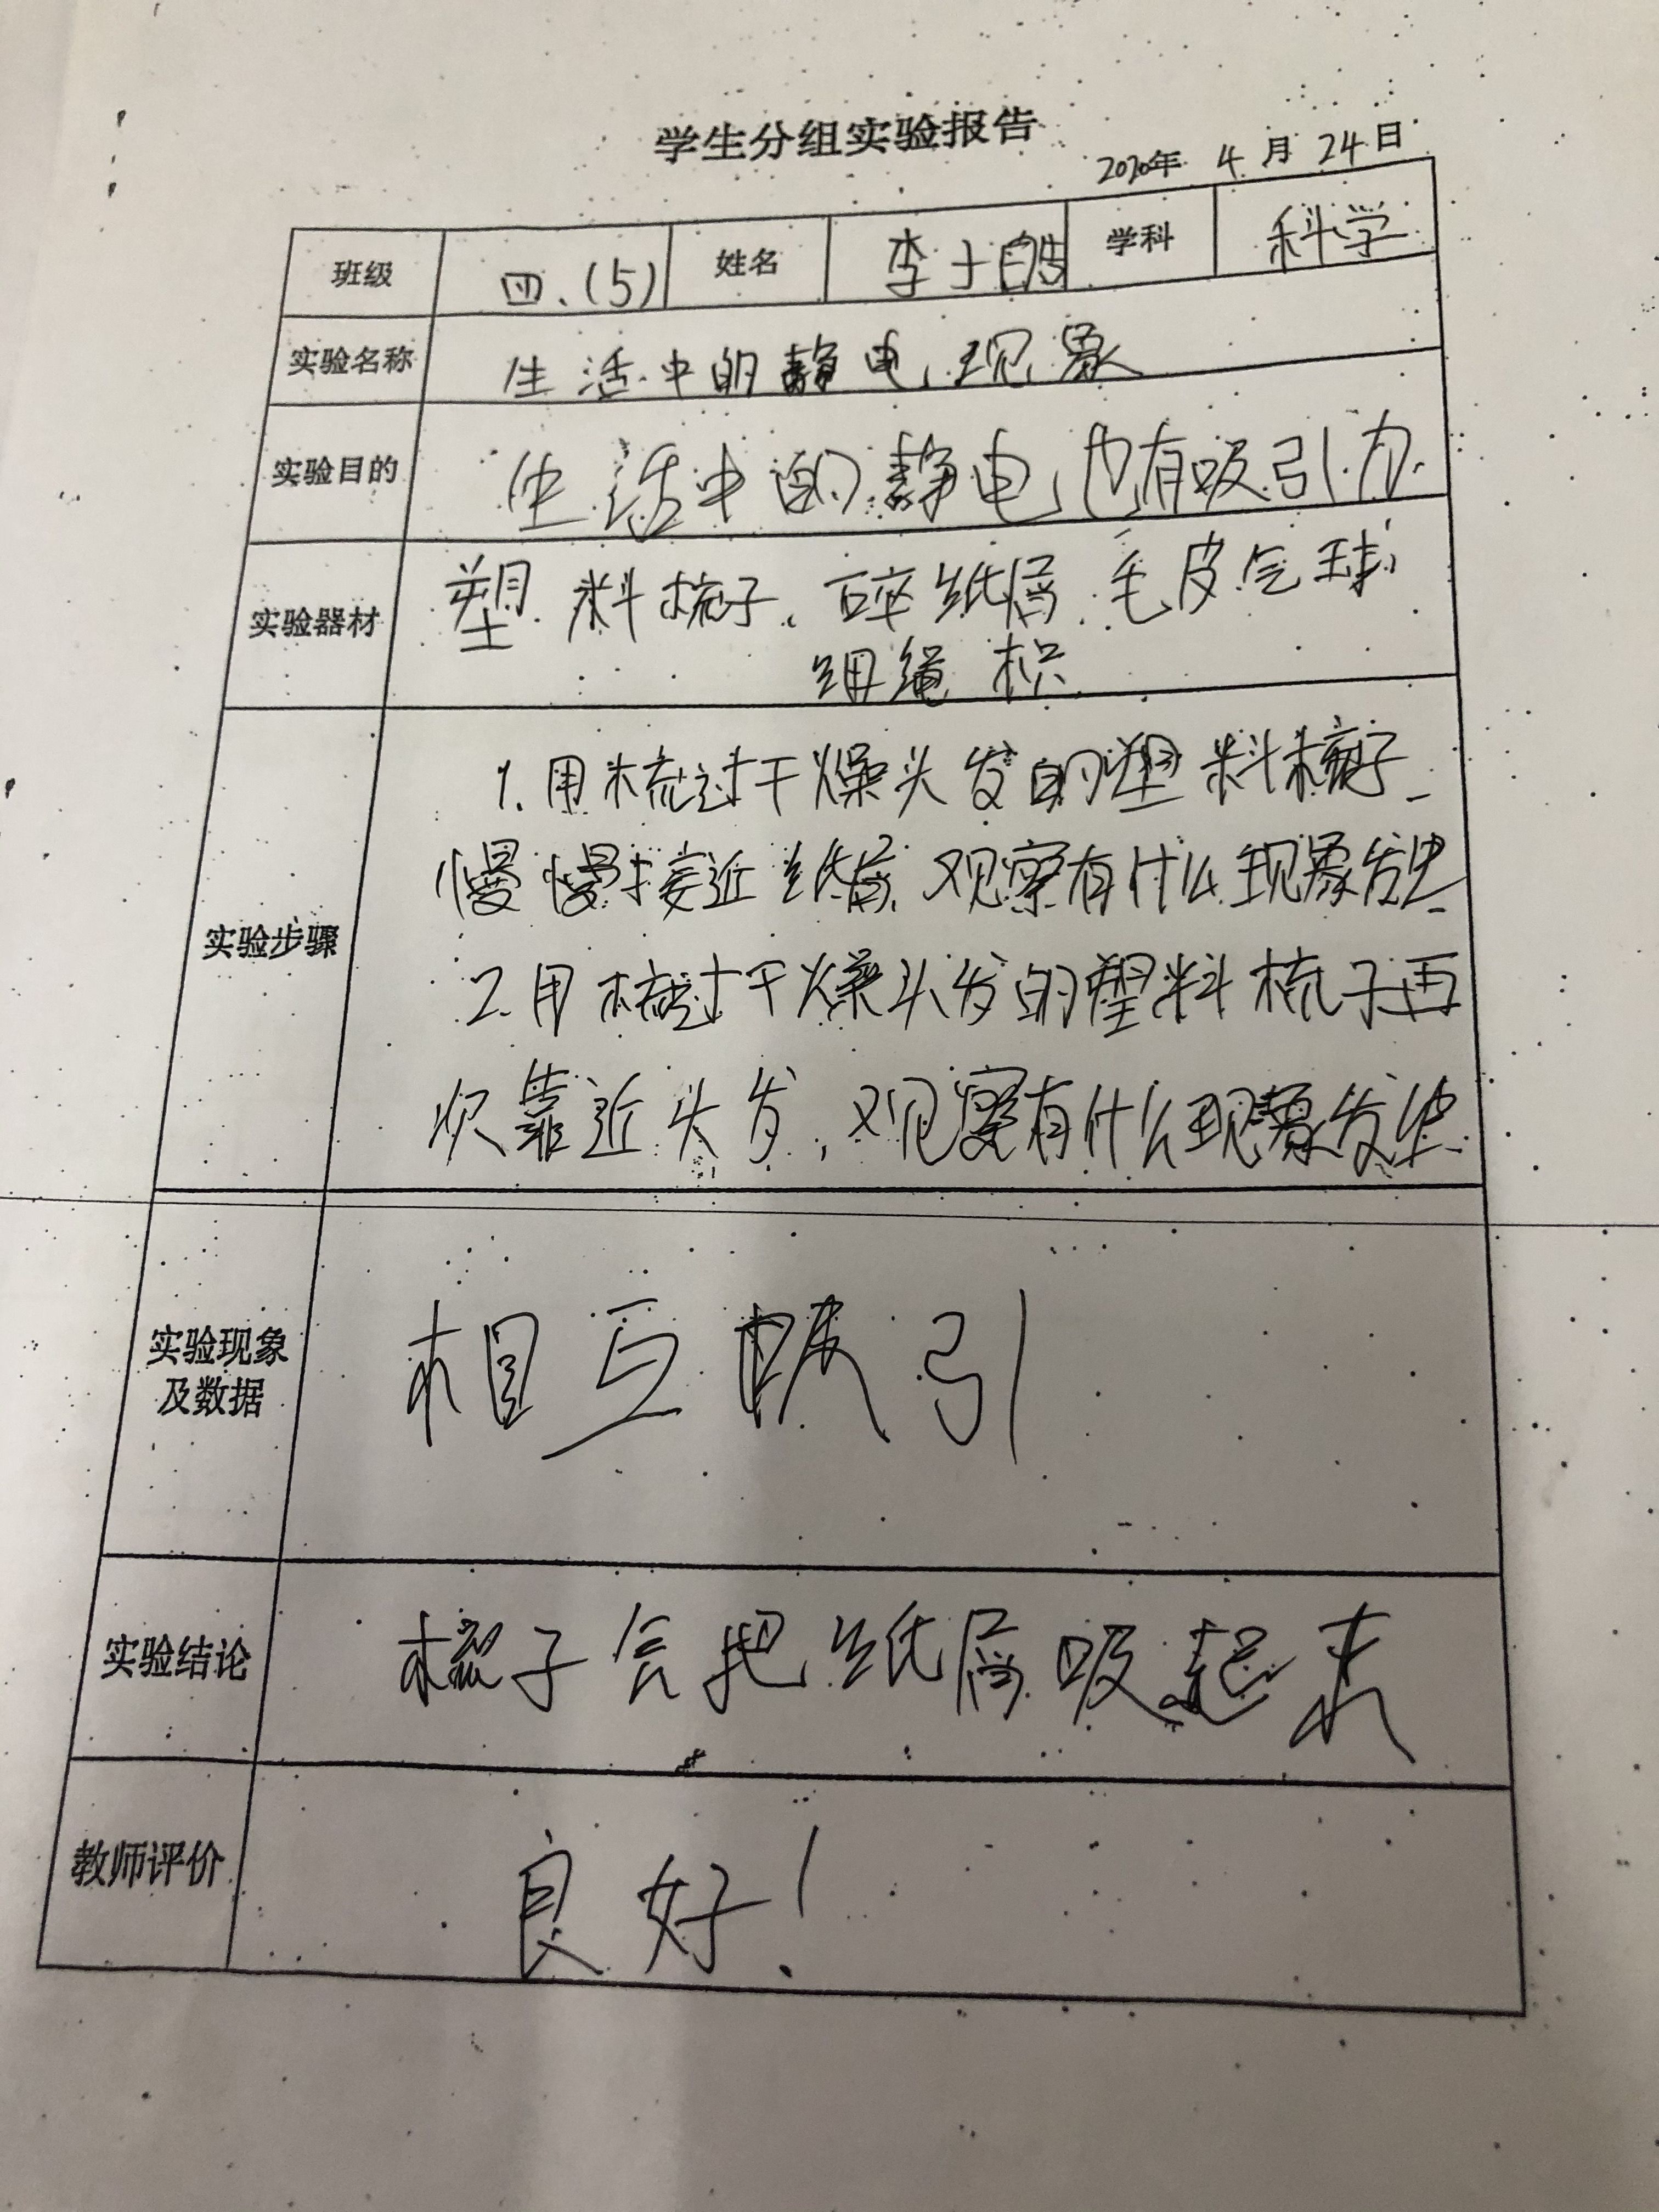 学生分组实验报告
2020年 4月24日
班级 四.(5) 姓名 李 学科 科学
实验名称 生活中的静电现象
实验目的 生活中的静电也有吸引力.
实验器材 塑料梳子、碎纸屑、毛皮气球
细绳
实验步骤 1.用梳过干燥头发的塑料梳子
慢慢接近纸屑,观察有什么现象发生
2.用梳过干燥头发的塑料梳子再
次靠近头发,观察有什么现象发生
实验现象
及数据
相互吸引
实验结论 梳子会把纸屑吸起来
教师评价 良好!